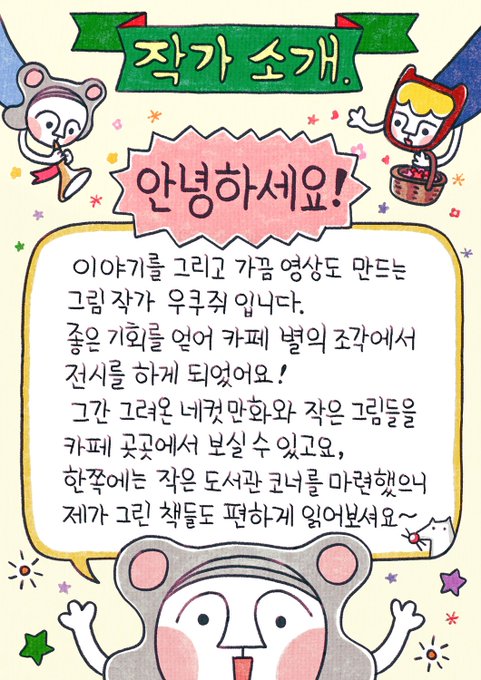 작가 소개.
안녕하세요!
이야기를 그리고 가끔 영상도 만드는
그림 작가 우쿠쥐 입니다.
좋은 기회를 얻어 카페 별의 조각에서
전시를 하게 되었어요!
그간 그려온 네컷만화와 작은 그림들을
카페 곳곳에서 보실 수 있고요,
한쪽에는 작은 도서관 코너를 마련했으니
제가 그린 책들도 편하게 읽어보셔요~